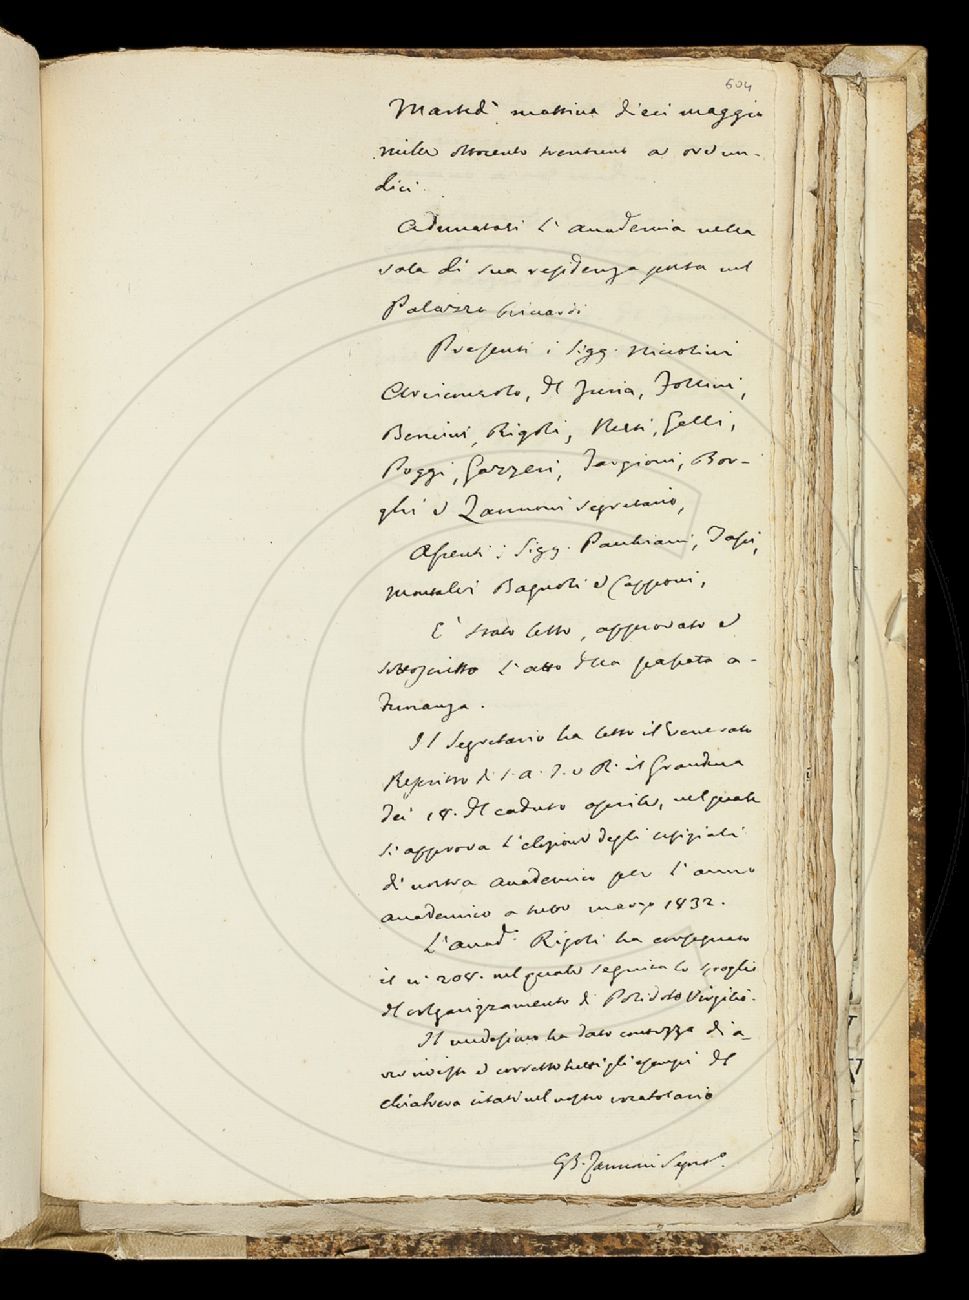 604
Martedì mattina dieci maggio
mille ottocento trentuno a ore un-
dici.
Adunatasi l'Accademia nella
sala di sua residenza posta nel
Palazzo Riccardi
Presenti i Sigg. Niccolini
Arciconsolo, Del Furia, Follini,
Bencini, Rigoli, Nesti, Gelli,
Poggi, Gazzeri, Targioni, Bor-
ghi e Zannoni Segretario,
Assenti i Sigg. Panciani, Tassi,
Montalvi Bagnoli e Capponi,
E' stato letto, approvato e
sottoscritto l'atto della passata a-
dunanza.
Il Segretario ha letto il Venerato
Rescritto di S. A. I. e R. il Granduca
dei 18. del caduto aprile, nel quale
si approva l'elezione degli ufiziali
di nostra Accademia per l'anno
accademico a tutto marzo 1832.
L'Accad. Rigoli ha consegnato
il n. 208. nel quale seguita lo spoglio
del volgarizzamento di Polidoro Virgilio.
Il medesimo ha dato contezza di a-
ver e corretto tutti gli esempi del
citati nel nostro vocabolario
GB. Zannoni Segret.o